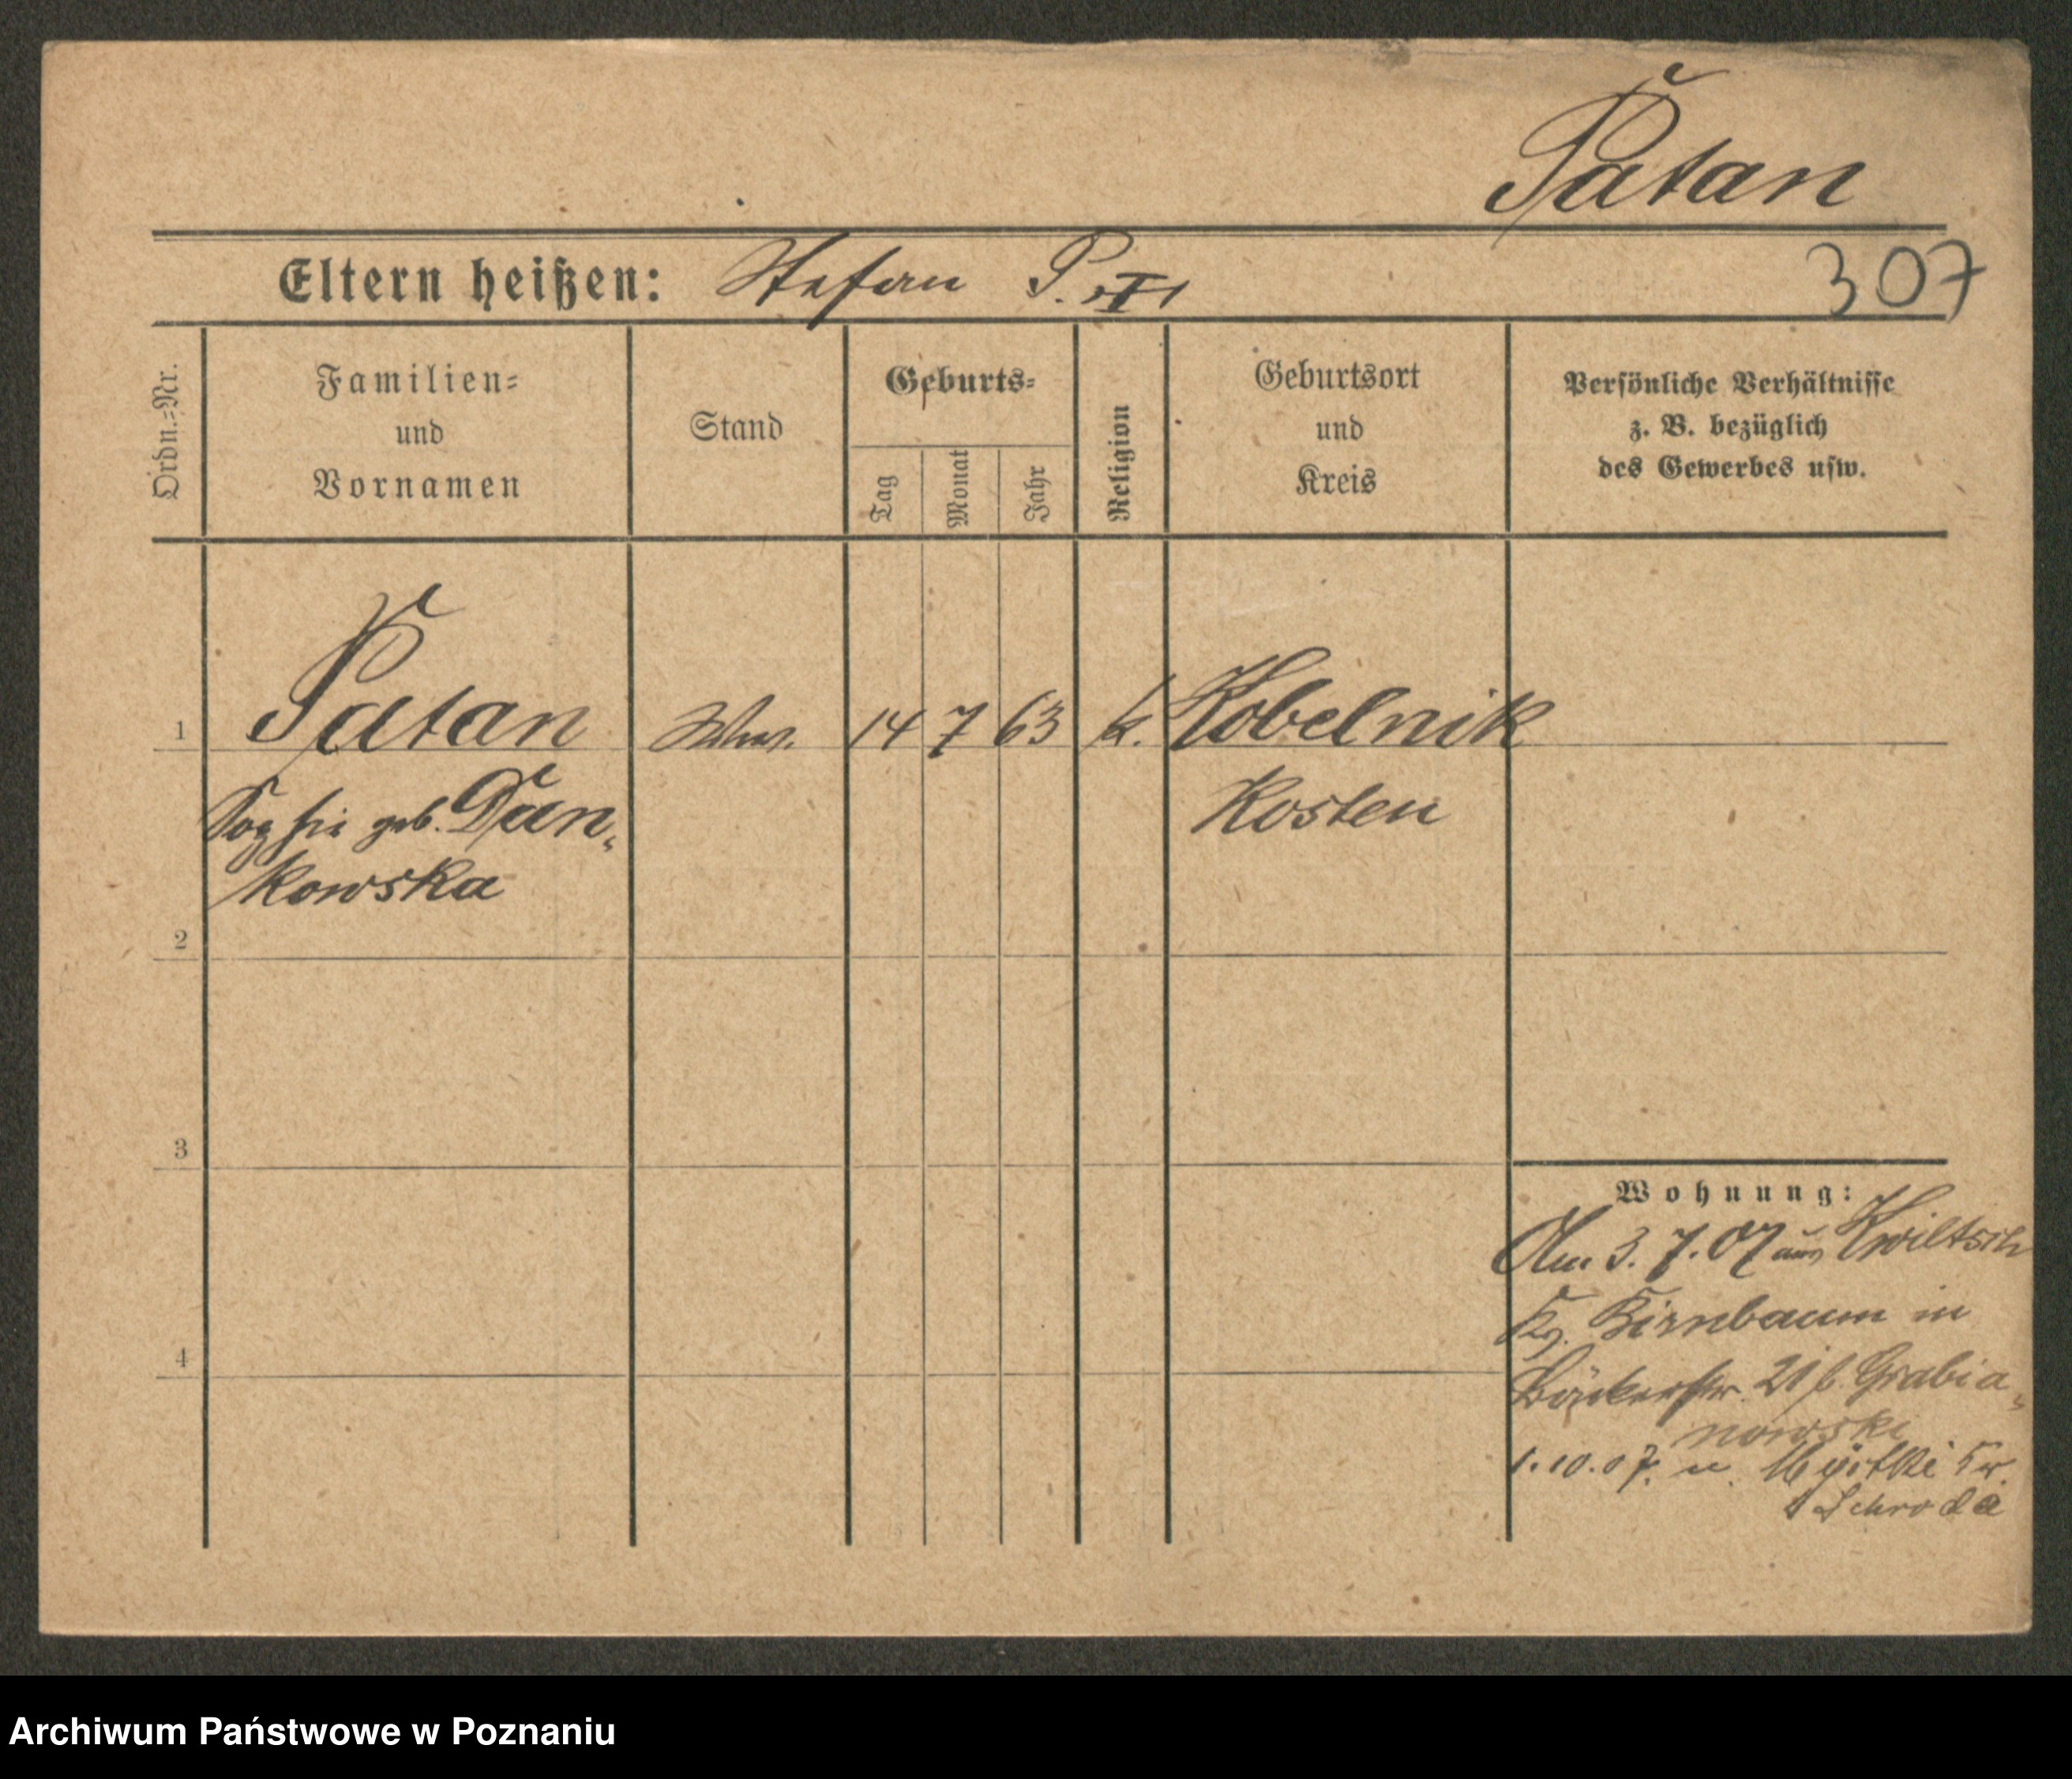 Patan
Eltern heißen: Stefan P.
307
Ordn.=Nr.
Familien=
und
Vornamen
Stand
Geburts=
Tag
Monat
Jahr
Religion
Geburtsort
und
Kreis
Persönliche Verhältnisse
z. B. bezüglich
des Gewerbes usw.
1 Patan Wwe. 14 7 63 k. Kobelnik
Sophie geb. Dan-
Kosten
kowska
2
3
4
Wohnung:
Am 3. 7. 07 aus Kwiltsch
Kr. Birnbaum in
Bäckerstr. 21 b. Grabia-
nowski
1.10.07. n. Kr.
Schroda
Archiwum Państwowe w Poznaniu